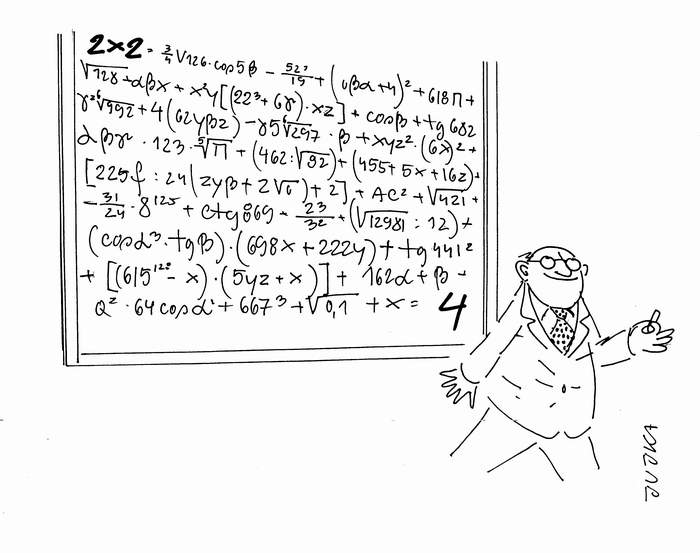 2×2 = 3/4 √126 · cos5β − 523/19 + (υβα+4)² + 618π +
√128 + αβx + x²y[(22³ + 6γ) · xz] + cosβ + tg 682
γ² ⁶√992 + 4(62yβz) − γ5 ⁶√297 · β + xyz² · (6x)² +
αβγ · 123 · ⁵√π + (462 : √92) + (455 + 5x + 16z) +
[225f : 24(zyβ + 2√6) + 2] + AC² + √421 +
− 31/24 · 8¹²⁵ + ctg 869 − 23/32 + (√12981 : 12) +
(cosα³ · tgβ) · (698x + 222y) + tg 441²
+ [(615¹²⁸ − x) · (5yz + x)] + 162α + β −
Q² · 64 cosα + 667³ + √0,1 + x = 4